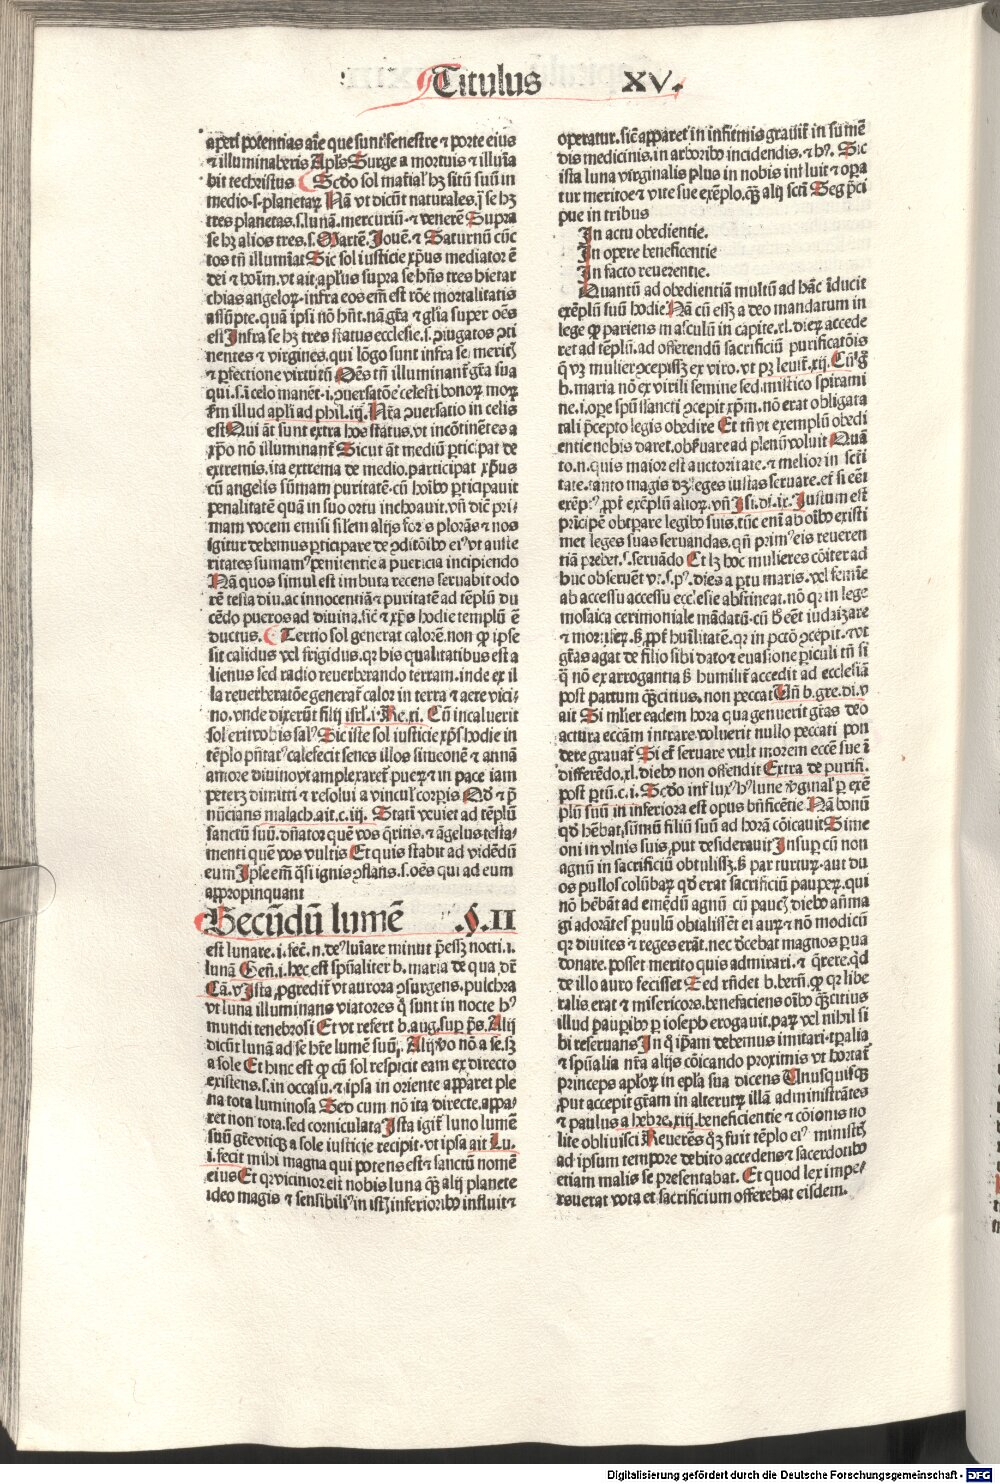 Titulus XV.
aperi potentias aīe que sunt fenestre ⁊ porte eius
⁊ illuminaberis Apls Surge a mortuis ⁊ illuīa
bit te christus Scdo sol matial hꝫ sitū suū in
medio .s. planetaꝝ Nā vt dicūt naturales. se hꝫ
tres planetas .s. lunā. mercuriū. ⁊ venerē Supra
se hꝫ alios tres .s. Martē. Jouē. ⁊ Saturnū cūc
tos tñ illumiat Sic sol iusticie xp̄us mediator ē
dei ⁊ hoīm. vt ait apl̄us supra se hn̄s tres hierar
chias angeloꝝ. infra eos em̄ est rōe mortalitatis
assūpte. quā ipsi nō hn̄t. nā gr̄a ⁊ gl̄ia super oēs
est Infra se hꝫ tres status ecclesie .s. ꝯiugatos ꝯti
nentes ⁊ virgines. qui lōgo sunt infra se meritꝭ
⁊ ꝑfectione virtutū Oēs tñ illuminant gr̄a sua
qui .s. i celo manēt .i. ꝯuersatōe celesti bonoꝝ moꝝ
km illud apli ad phil. iij. Nr̄a ꝯuersatio in celis
est Qui āt sunt extra hos status. vt incōtinētes a
xp̄o nō illuminant Sicut āt mediū ꝑticipat de
extremis. ita extrema de medio. participat xp̄us
cū angelis sūmam puritatē. cū hoībꝰ ꝑticipauit
penalitatē quā in suo ortu inchoauit. vn̄ dic̄ pri-
mam vocem emisi silem alijs fors plorās ⁊ nos
igitur debemus ꝑticipare de ꝯditōibꝰ eiꝰ vt auste
ritates sumamꝰ penitentie a puericia incipiendo
Nā quos simul est imbuta recens seruabit odo
rē testa diu. ac innocentiā ⁊ puritatē ad tēplū du
cēdo pueros ad diuina. sic̄ ⁊ xp̄s hodie templū ē
ductus. Tertio sol generat calorē. non ꝙ ipse
sit calidus vel frigidus. qꝛ his qualitatibus est a
lienus sed radio reuerberando terram. inde ex il
la reuerberatōe generat̄ calor in terra ⁊ aere vici-
no. vnde dixerūt filij isrl̄ .i. Re. xi. Cū incaluerit
sol erit vobis salꝰ Sic iste sol iusticie xp̄s hodie in
tēplo pn̄tatꝰ calefecit senes illos simeonē ⁊ annā
amore diuino vt amplexaret pueꝝ ⁊ in pace iam
peteret dimitti ⁊ resolui a vinculꝭ corpis
nūcians malach. ait. c. iij. Stati veniet ad tēplū
sanctū suū. dn̄ator quē vos q̄ritis. ⁊ āgelus testa-
menti quē vos vultis Et quis stabit ad vidēdū
eum Ipse em̄ q̄si ignis ꝯflans .s. oēs qui ad eum
appropinquant
Secūdū lumē .§. II
est lunare .i. fec̄. n. deꝰ luīare minus
lunā Gen̄. i. hec est spūaliter b. maria de qua dr̄
Cā. v Ista ꝓgredit vt aurora ꝯsurgens. pulchra
vt luna illuminans viatores q̄ sunt in nocte hꝰ
mundi tenebrosi Et vt refert b. aug. sup ps̄. Alij
dicūt lunā ad se hr̄e lumē suū. Alij vo nō a se. sꝫ
a sole Et hinc est ꝙ cū sol respicit eam ex directo
existens .s. in occasu. ⁊ ipsa in oriente apparet ple
na tota luminosa Sed cum nō ita directe. appa-
ret non tota. sed corniculata Ista igit luno lumē
suū a sole iusticie recipit. vt ipsa ait Lu.
i. fecit mihi magna qui potens est ⁊ sanctū nomē
eius Et qꝛ vicinior est nobis luna q̄ꝫ alij planete
ideo magis ⁊ sensibiliꝰ in istꝭ inferioribꝰ influit ⁊
operatur. sic̄ apparet in infirmis in sumē
dis medicinis. in arboribꝰ incidendis. ⁊ hꝰ. Sic
ista luna virginalis plus in nobis influit ⁊ opa
tur meritoe ⁊ vite sue exēplo. q̄ꝫ alij scti Seqꝛ pci
pue in tribus
In actu obedientie.
In opere beneficentie
In facto reuerentie.
Quantū ad obedientiā multū ad hāc iducit
exēplū suū hodie. Nā cū essꝫ a deo mandatum in
lege ꝙ pariens masculū in capite. xl. dieꝝ accede
ret ad tēplū. ad offerendū sacrificiū purificatōis
mulier ꝯcepissꝫ ex viro. vt pꝫ leuit. xij. Cū
b. maria nō ex virili semine sed mistico spirami
ne .i. ope spūssancti ꝯcepit xpm. nō erat obligata
tali p̄cepto legis obedire Et tñ vt exemplū obedi
entie nobis daret. obseruare ad plenū voluit Quā
to .n. quis maior est auctoritate. ⁊ melior in scti
tate. tanto magis dꝫ leges iustas seruare. et si
ꝓpt exēplū alioꝝ. vn̄ Isi. di. ix. Justum est
principē obtꝑare legibꝰ suis. tūc eni ab oībꝰ existi
met leges suas seruandas. qn̄ primꝰ eis reueren
tiā prebet .s. seruādo Et lꝫ hoc mulieres cōiter ad
huc obseruēt vꝫ .s. dies a ꝑtu maris. vel femie
ab accessu ecclesie abstineat. nō qꝛ in lege
mosaica cerimoniale mādatū. cū iudaizare
ꝓpt humilitatē. qꝛ in pctō ꝯcepit. ⁊ vt
gr̄as agat de filio sibi dato ⁊ euasione ꝑiculi tñ si
q̄ nō ex arrogantia sꝫ humilit accedit ad ecclesiā
post partum q̄ꝫcitius. non peccat Vn̄ b. gre. di. v
ait Si ml̄ier eadem hora qua genuerit gr̄as deo
actura eccām intrare voluerit nullo peccati pon
dere grauat Si et seruare vult morem eccē sue i
differēdo. xl. diebꝰ non offendit Extra de purifi.
post ꝑtū. c. i. Scdo int luxꝰ hꝰ lune ꝟginal ꝑ exē
plū suū in inferiora est opus bn̄ficētie Nā bonū
qd hēbat, sūmū filiū suū ad horā cōicauit Sime
oni in vlnis suis, put desiderauit Insup cū non
agnū in sacrificiū obtulissꝫ. sꝫ par turtuꝝ. aut du
os pullos colūbaꝝ qd erat sacrificiū paupeꝝ. qui
nō hēbāt ad emēdū agnū cū paucꝭ diebꝰ an̄ ma
gi adorātes ꝑuulū obtulissēt ei auꝝ ⁊ nō modicū
qꝛ diuites ⁊ reges erāt. nec dꝫcebat magnos ꝑua
donare. posset merito quis admirari. ⁊ q̄rere. qd
de illo auro fecisset Sed rn̄det b. bern̄. ꝙ qꝛ libe
ralis erat ⁊ misericors. benefaciens oībꝰ q̄ꝫcitius
illud paupibꝰ ꝑ ioseph erogauit. paꝝ vel nihil si
bi reseruans In q̄ ipam debemus imitari. tꝑalia
⁊ spūalia nr̄a alijs cōicando proximis vt hortat
princeps aploꝝ in epl̄a sua dicens Vnusquisqꝫ
put accepit gr̄am in alterutꝝ illā administrātes
⁊ paulus a hebre. xiij. beneficientie ⁊ cōionis no
lite obliuisci Reuerēs qꝫ fuit tēplo eiꝰ ministꝭ
ad ipsum tempore debito accedens ⁊ sacerdotibꝰ
etiam malis se presentabat. Et quod lex impe-
rauerat vota et sacrificium offerebat eisdem.
Digitalisierung gefördert durch die Deutsche Forschungsgemeinschaft - DFG